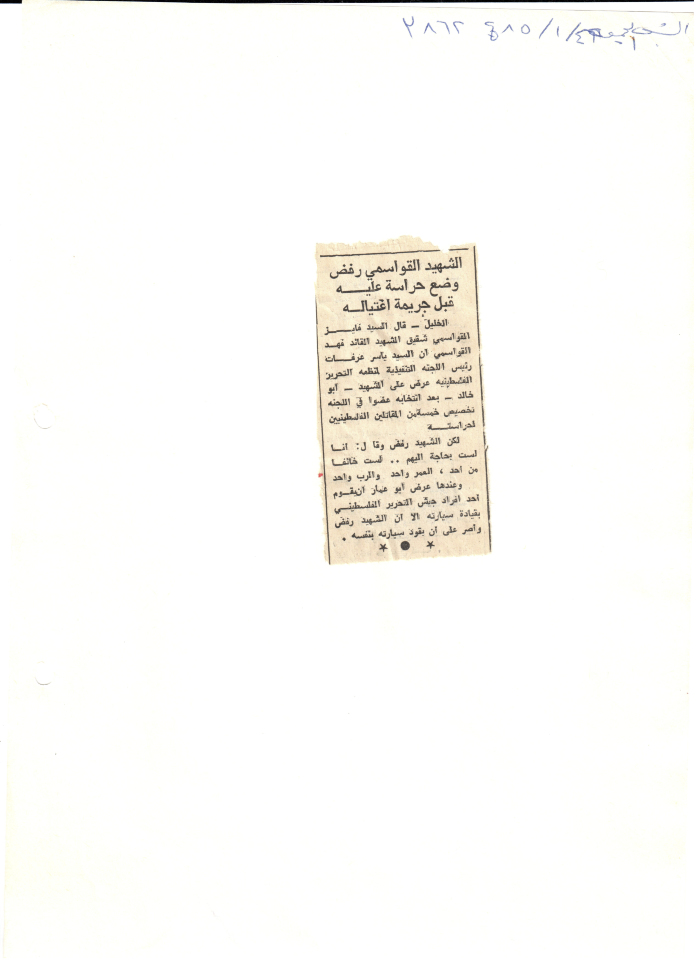 ٨٥/١/ ٣٨٦٢
الشهيد القواسمي رفض
وضع حراسة عليـــه
قبل جريمة اغتيالـه
الخليل ـ قال السيد فايـــز
القواسمي شقيق الشهيد القائد فهـد
القواسمي ان السيد ياسر عرفـات
رئيس اللجنه التنفيذية لمنظمه التحرير
الفلسطينيه عرض على الشهيد ـ أبو
خالد ـ بعد انتخابه عضوا في اللجنه
تخصيص خمسة من المقاتلين الفلسطينيين
لحراستـــه
لكن الشهيد رفض وقال : انـا
لست بحاجة اليهم .. لست خائفـا
من احد ، العمر واحد والرب واحد
وعندها عرض أبو عمار ان يقوم
احد افراد جيش التحرير الفلسطينـي
بقيادة سيارته الا ان الشهيد رفض
واصر على ان يقود سيارته بنفسه .